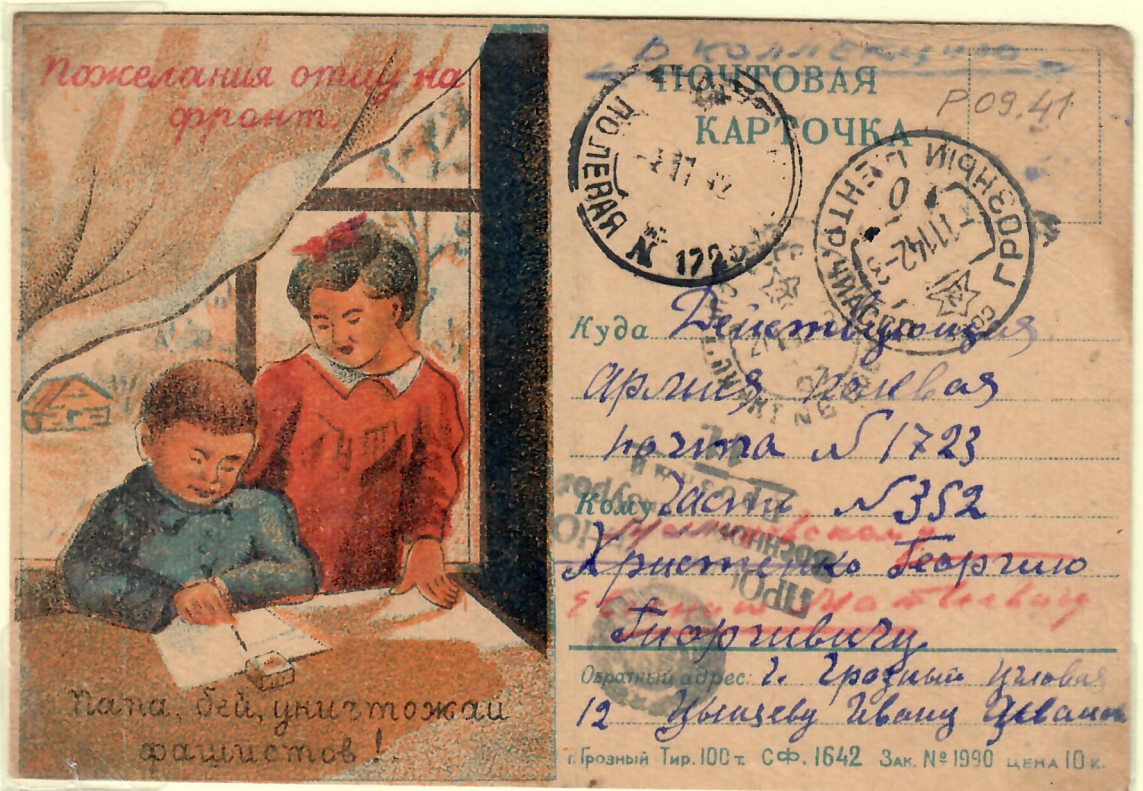 Пожелания отцу на
фронт.
Папа, бей, уничтожай
фашистов!
В коллекцию
ПОЧТОВАЯ
КАРТОЧКА
Р 09.41
ПОЛЕВАЯ
№ 1723
ГРОЗНЫЙ
Куда Действующая
армия полевая
почта № 1723
Кому Часть № 352
Христенко Георгию
Гиоргивичу
Обратный адрес: г. Грозный Угловая
12
г. Грозный Тир. 100 т. СФ. 1642 Зак. № 1990 ЦЕНА 10 к.